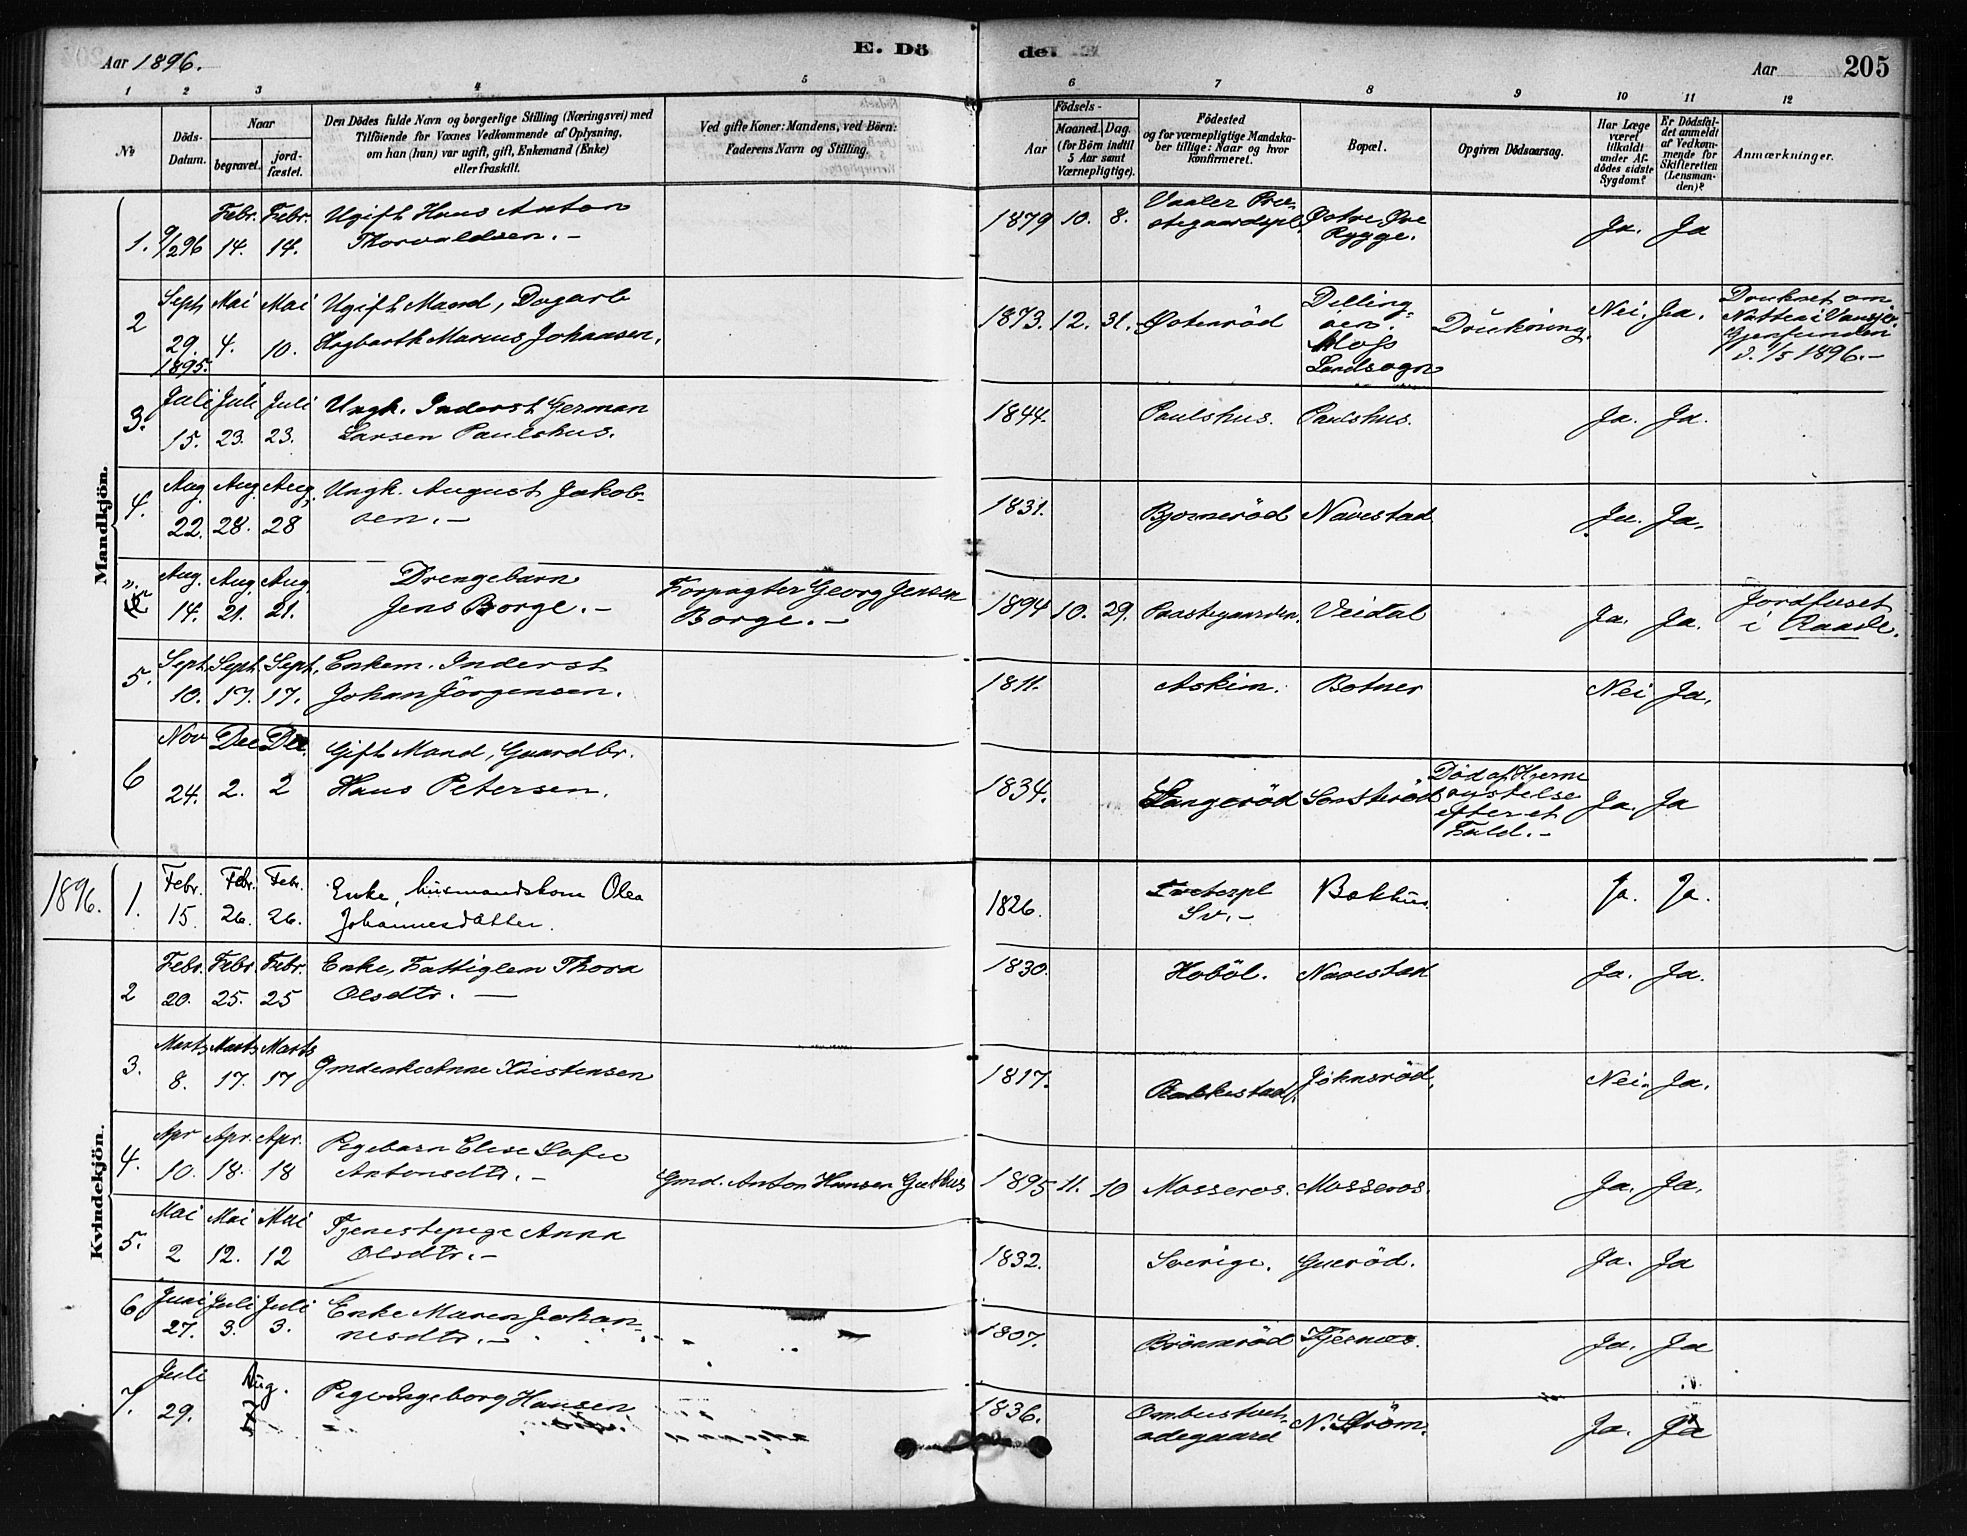 Aar 1896.
E. Dö
de.
Aar
205
1 2 3 4 5 6 7 8 9 10 11 12
No
Döds-
Datum.
Naar
begravet.
jord-
fæstet.
Den Dödes fulde Navn og borgerlige Stilling (Næringsvei) med
Tilföiende for Voxnes Vedkommende af Oplysning,
om han (hun) var ugift, gift, Enkemand (Enke)
eller fraskilt.
Ved gifte Koner: Mandens, ved Börn:
Faderens Navn og Stilling.
Födsels-
Aar
Maaned. Dag.
(for Börn indtil
5 Aar samt
Værnepligtige).
Födested
og for værnepligtige Mandska-
ber tillige: Naar og hvor
konfirmeret.
Bopæl.
Opgiven Dödsaarsag.
Har Læge
været
tilkaldt
under Af-
dödes sidste
Sygdom?
Er Dödsfal-
det anmeldt
af Vedkom-
mende for
Skifteretten
(Lensman-
den)?
Anmærkninger.
Mandkjön.
1. 9/2 96 Febr. 14. Febr. 14. Ugift Hans Anton
Thorvaldsen. - 1879 10. 8. Vaaler Præ-
stegaardspl. Østre Øre
Rygge. Ja. Ja
2 Sept 29. 1895. Mai 4. Mai 10. Ugift Mand, Dagarb
Hagbarth Marcus Johansen. 1873. 12. 31. Østenröd Dilling-
öen.
Moss
Landsogn Drukning. Nei. Ja. Druknet om
Natten i Vansjö.
Gjenfunden
d. 1/5 1896. -
3. Juli 15. Juli 23. Juli 23. Ungk. Inderst German
Larsen Paulshus. 1844. Paulshus. Paulshus. Ja. Ja.
4. Aug 22. Aug. 28. Aug. 28 Ungk. August Jakob-
sen. - 1831. Bjorneröd Navestad Ja. Ja.
Aug. 14. Aug. 21. Aug. 21. Drengebarn
Jens Borge. - Forpagter Georg Jensen
Borge. - 1894 10. 29. Veidal Ja. Ja. Jordfæstet
i Raade.
5. Sept. 10. Sept. 17. Sept. 17. Enkem. Inderst
Johan Jörgensen. 1811. Askim. Botner Nei Ja.
6 Nov 24. Dec 2. Dec. 2 Gift Mand, Gaardbr.
Hans Petersen. 1834. Langeröd Död af Hjerne
rystelse
efter et
Fald. - Ja. Ja
Kvindekjön.
1896.
1. Febr. 15. Febr. 26. Febr. 26. Enke, husmandskone Olea
Johannesdatter. 1826. Sv. - Bakhus. Ja. Ja.
2 Febr. 20. Febr. 25. Febr. 25 Enke, Fattiglem Thora
Olsdtr. - 1830. Hoböl. Navestad Ja. Ja.
3. Marts 8. Marts 17. Marts 17 Gmdenke Anne Kristensen 1817. Rakkestad. Johnsröd. Nei. Ja.
4. Apr 10. Apr. 18. Apr. 18 Pigebarn Elise Sofie
Antonsdtr. - Gmd. Anton Hansen Guthus 1895 11. 10 Mosseros. Mosseros. Ja. Ja.
5. Mai 2 Mai 12. Mai 12 Tjenestepige Anna
Olsdtr. - 1832. Sverige. Gueröd. Ja. Ja
6 Juni 27. Juli 3. Juli 3. Enke Maren Johan-
nesdtr. - 1807. Brönneröd Tjernæs. Ja. Ja
7. Juli 29. Aug. Pige Ingeborg Hansen 1836. Ombustvet-
ödegaard N. Ström. Ja. Ja